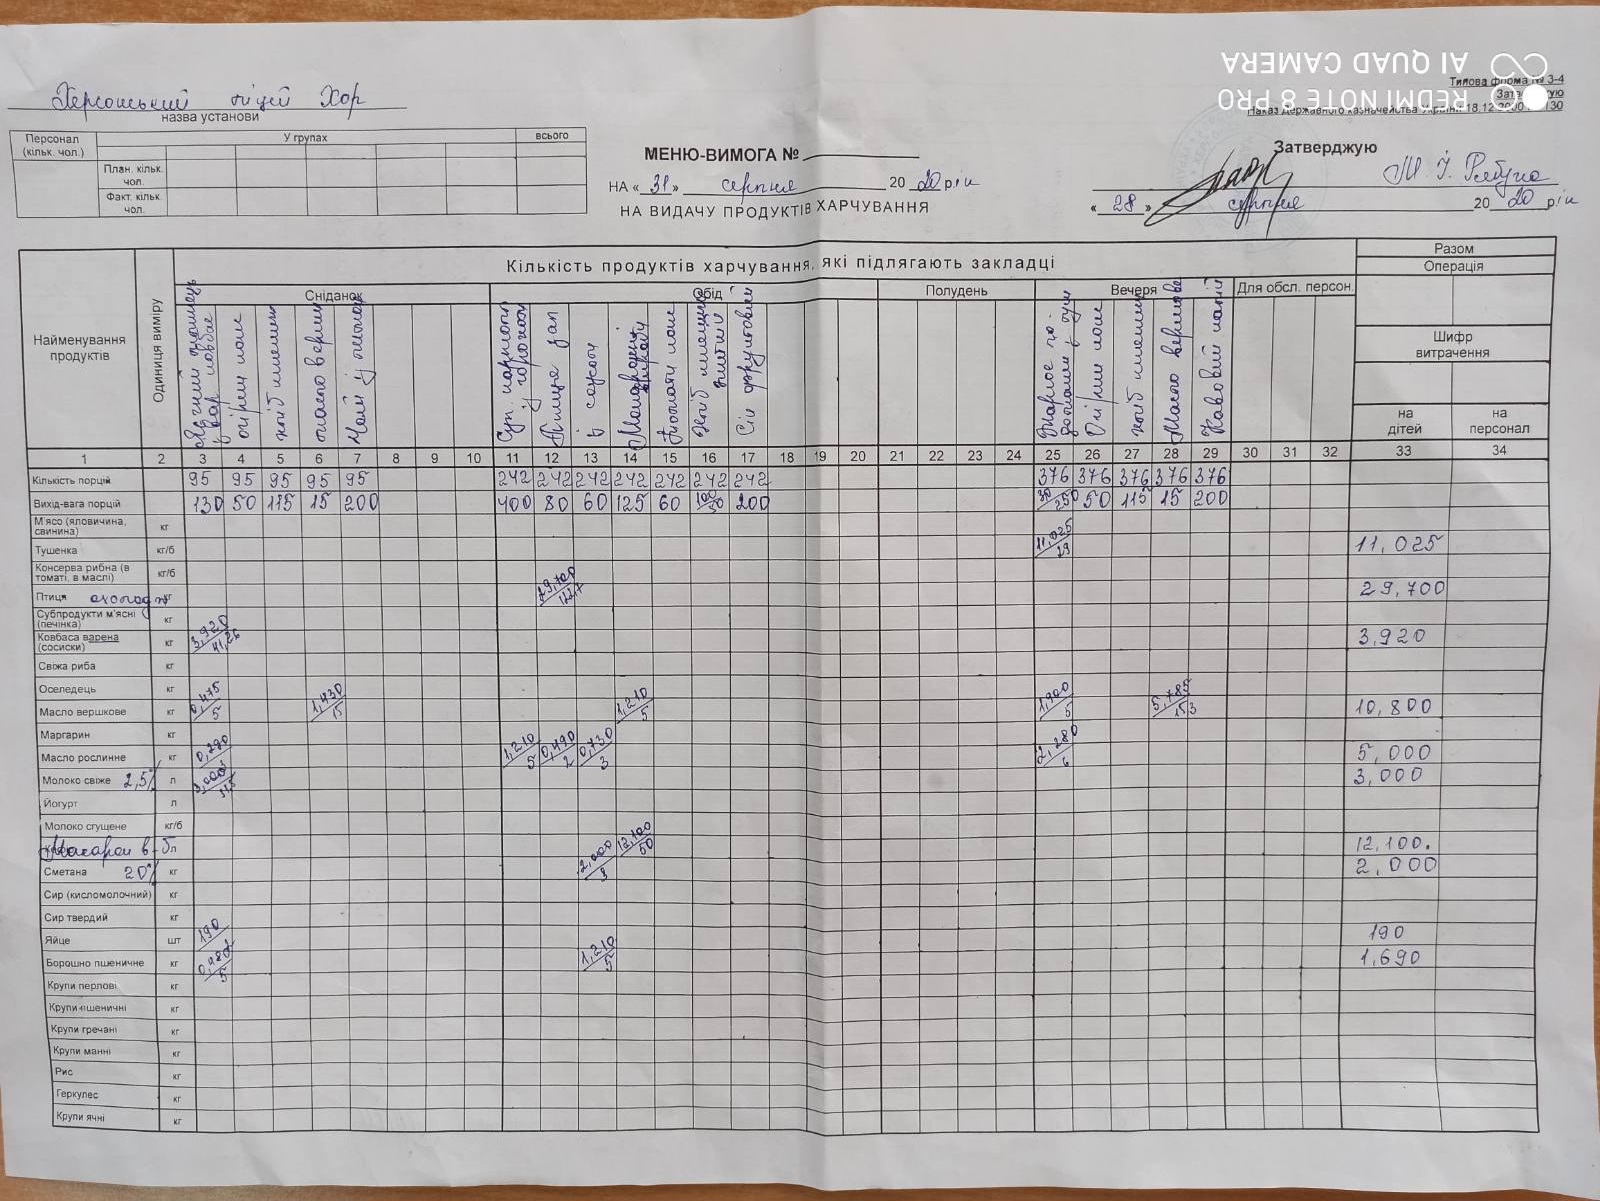 AI QUAD CAMERA
REDMI NOTE 8 PRO
Типова форма № З-4
Наказ Державного казначейства України 18.12.2000 № 130
Херсонський ліцей Хор
назва установи
Персонал (кільк. чол.) У групах всього
План. кільк. чол.
Факт. кільк. чол.
МЕНЮ-ВИМОГА №
НА «31» серпня 2020 рік
НА ВИДАЧУ ПРОДУКТІВ ХАРЧУВАННЯ
Затверджую
«28» серпня 2020 рік
Найменування продуктів
Одиниця виміру
Кількість продуктів харчування, які підлягають закладці
Разом
Операція
Сніданок Обід Полудень Вечеря Для обсл. персон.
Шифр витрачення
на дітей на персонал
огірки
масло вершк
Птиця зап
в соусі
Макарони
Томати
Сік фруктовий
Огірки
Масло вершкове
Кавовий напій
1 2 3 4 5 6 7 8 9 10 11 12 13 14 15 16 17 18 19 20 21 22 23 24 25 26 27 28 29 30 31 32 33 34
Кількість порцій 95 95 95 95 95 242 242 242 242 242 242 242 376 376 376 376 376
Вихід-вага порцій 130 50 115 15 200 400 80 60 125 60 100/50 200 30/250 50 115 15 200
М'ясо (яловичина, свинина) кг
Тушенка кг/б 11,025/29 11,025
Консерва рибна (в томаті, в маслі) кг/б
Птиця охолодж кг 29,700/122,7 29,700
Субпродукти м'ясні (печінка) кг
Ковбаса варена (сосиски) кг 3,920/41,26 3,920
Свіжа риба кг
Оселедець кг
Масло вершкове кг 0,475/5 1,430/15 1,210/5 1,900/5 5,785/15 3 10,800
Маргарин кг
Масло рослинне кг 0,290 1,210/5 0,490/2 0,730/3 2,280/6 5,000
Молоко свіже 2,5% л 3,000/31,5 3,000
Йогурт л
Молоко сгущене кг/б
Макарон в-б л 12,100/50 12,100.
Сметана 20% кг 2,000/3 2,000
Сир (кисломолочний) кг
Сир твердий кг
Яйце шт 190 190
Борошно пшеничне кг 0,480/5 1,210/5 1,690
Крупи перлові кг
Крупи пшеничні кг
Крупи гречані кг
Крупи манні кг
Рис кг
Геркулес кг
Крупи ячні кг